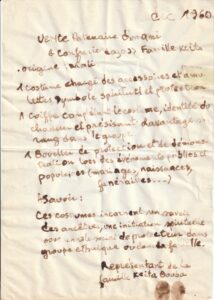 Dec 1960
VENTE Patenaire Dongmi
à Confrérie Famille Keita
origine Mali
1 costume chargé des accessoires et amu
lettes symbole spirituel et protection
1 Coiffe complétant le costume, identité du
chasseur et présentant davantage son
rang dans le groupe
1 Bouclier de protection et de démons
tration lors des événements publics et
populaires (mariages, naissances,
funérailles....)
à savoir :
Ces costumes incarnent un savoir
des ancêtres, une initiation spirituelle
un rôle de protecteur dans
groupe ethnique ou dans la famille.
Représentant de la
famille Keita